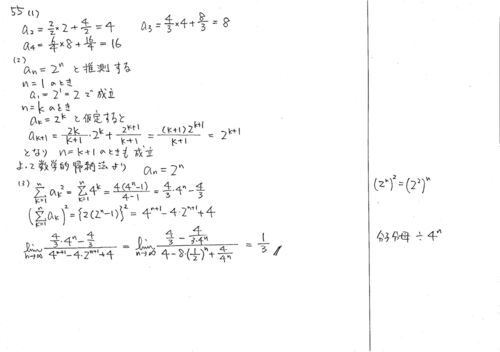 55 (1)
a₂ = 2/2 × 2 + 4/2 = 4    a₃ = 4/3 × 4 + 8/3 = 8
a₄ = 6/4 × 8 + 16/4 = 16
(2)
aₙ = 2ⁿ と推測する
n = 1 のとき
a₁ = 2¹ = 2 で成立
n = k のとき
aₖ = 2ᵏ と仮定すると
aₖ₊₁ = 2k/(k+1) · 2ᵏ + 2ᵏ⁺¹/(k+1) = (k+1)2ᵏ⁺¹/(k+1) = 2ᵏ⁺¹
となり n = k+1 のときも成立
よって数学的帰納法より aₙ = 2ⁿ
(3) Σ[k=1→n] aₖ² = Σ[k=1→n] 4ᵏ = 4(4ⁿ-1)/(4-1) = 4/3 · 4ⁿ - 4/3    (2ⁿ)² = (2²)ⁿ
(Σ[k=1→n] aₖ)² = {2(2ⁿ-1)}² = 4ⁿ⁺¹ - 4·2ⁿ⁺¹ + 4
lim[n→∞] (4/3 · 4ⁿ - 4/3)/(4ⁿ⁺¹ - 4·2ⁿ⁺¹ + 4) = lim[n→∞] (4/3 - 4/(3·4ⁿ))/(4 - 8·(1/2)ⁿ + 4/4ⁿ) = 1/3    分子分母 ÷ 4ⁿ